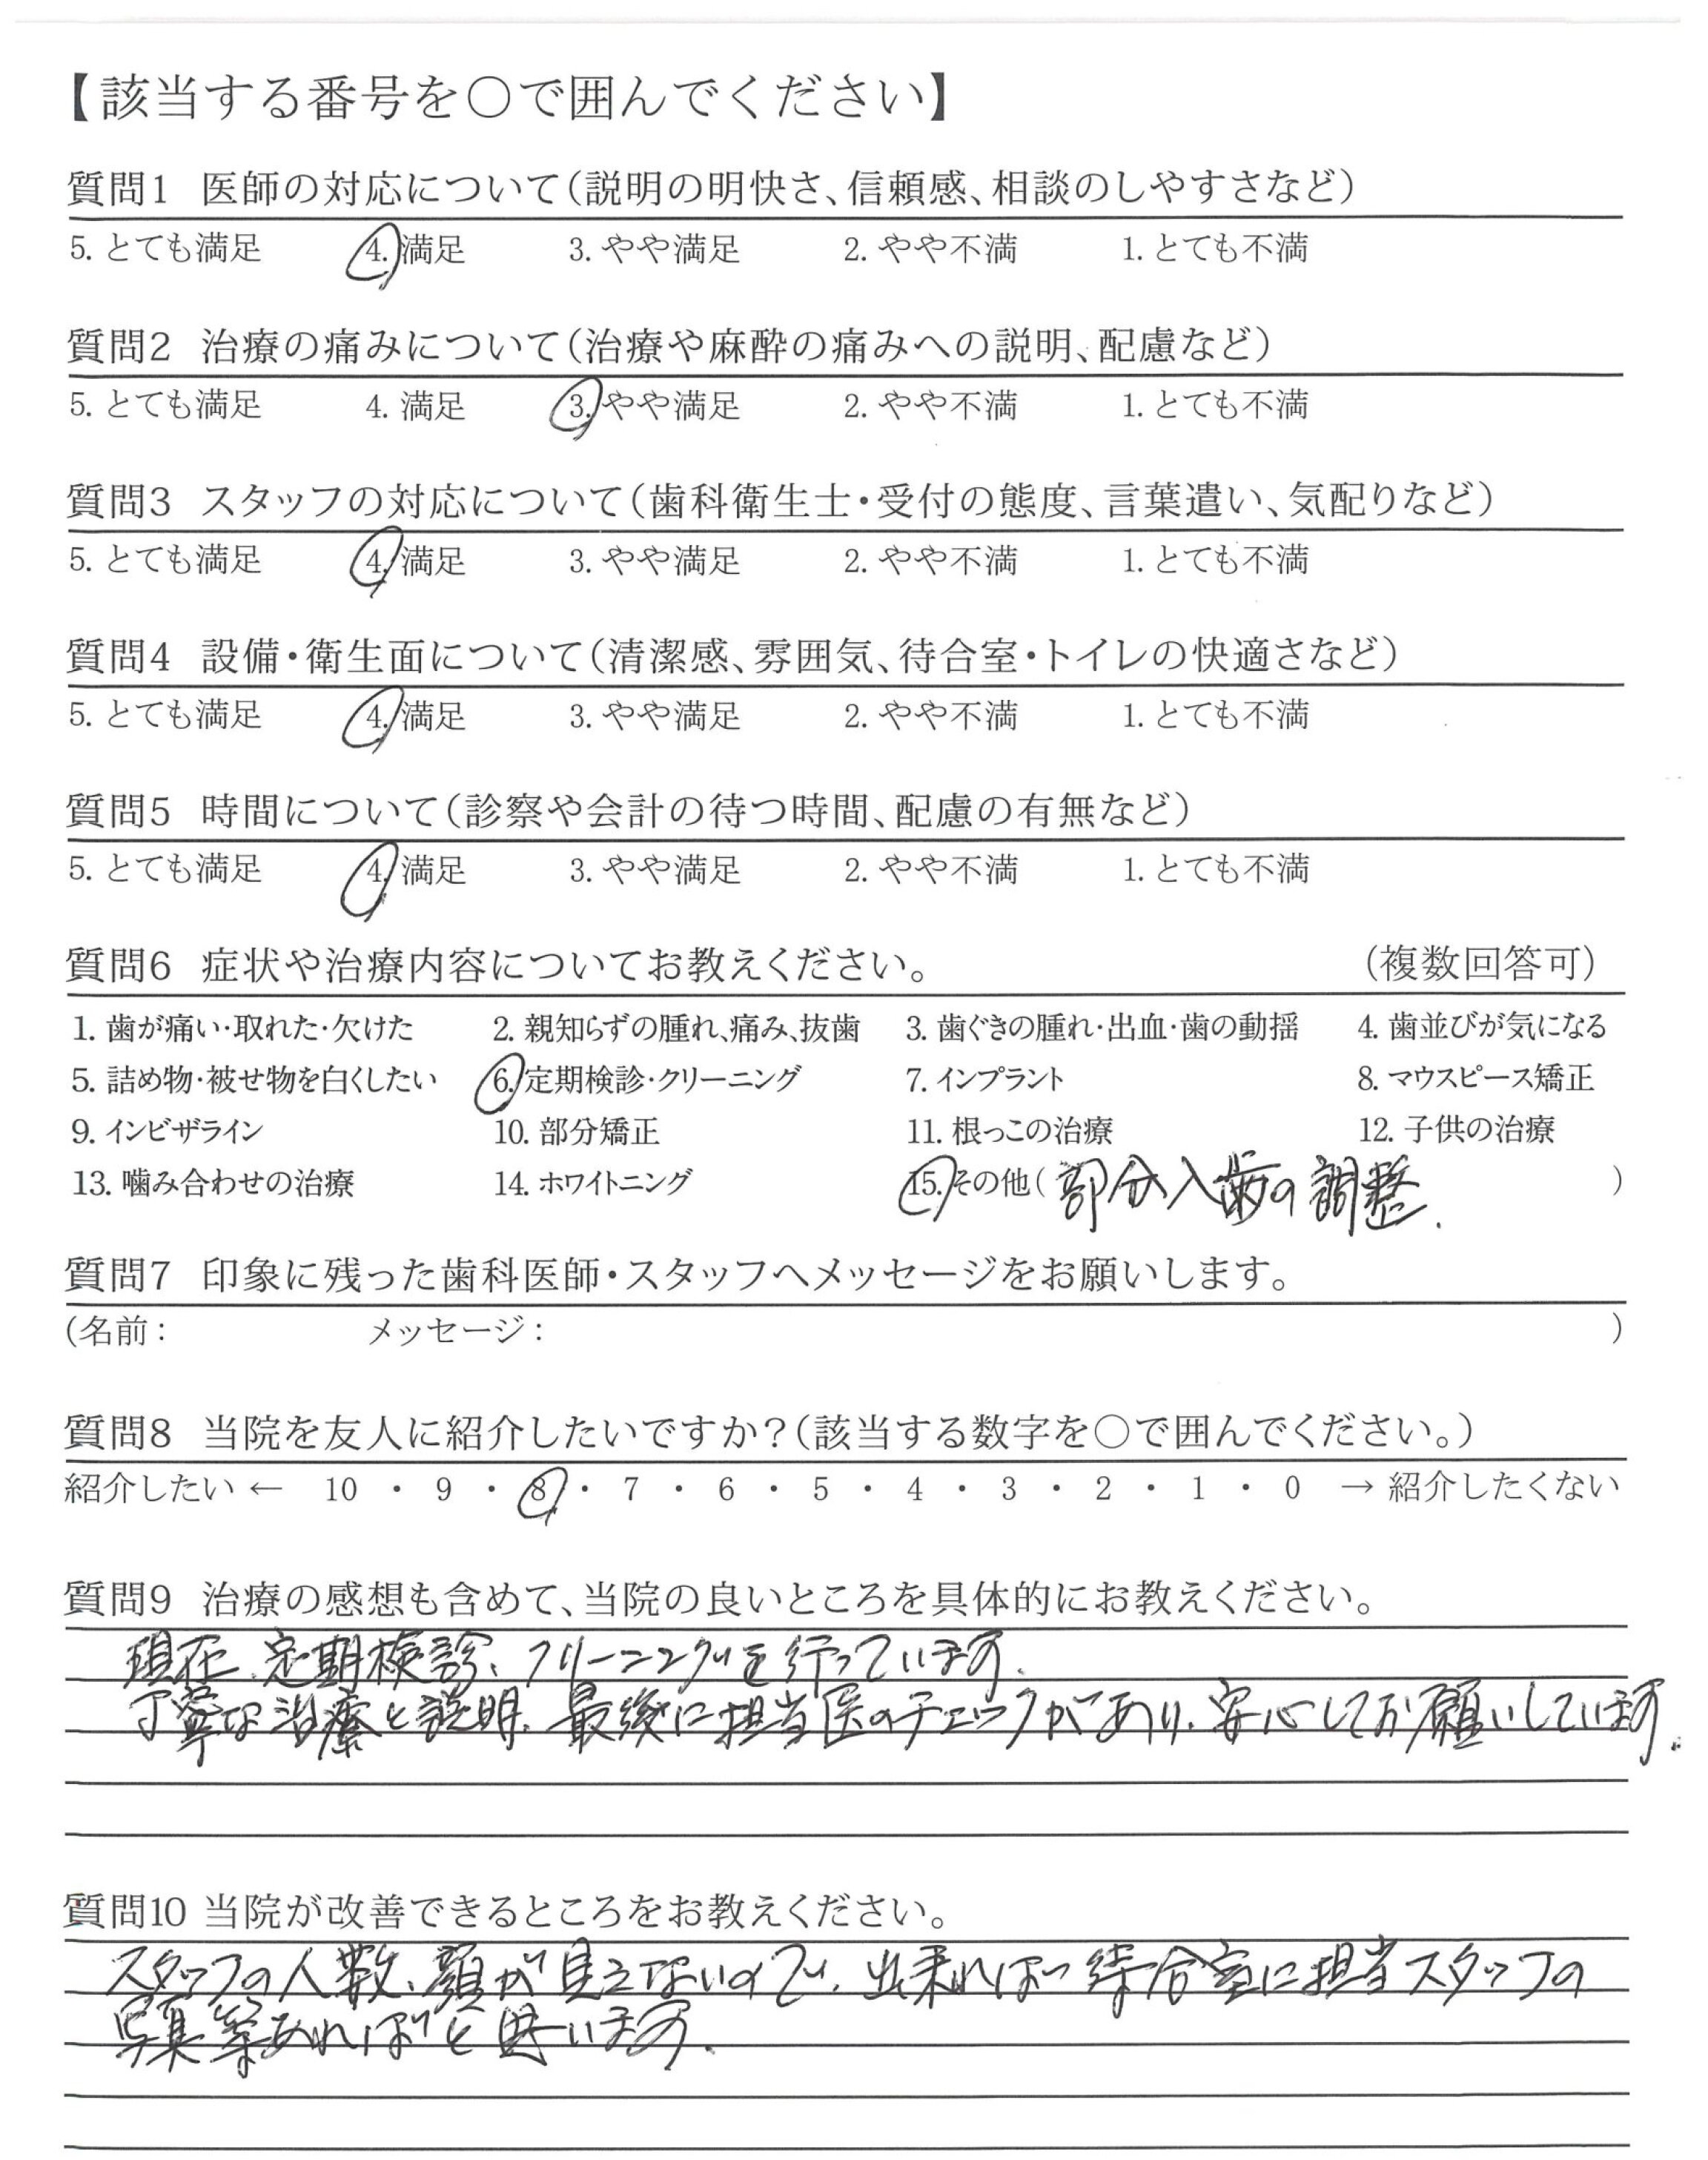 【該当する番号を○で囲んでください】
質問1 医師の対応について(説明の明快さ、信頼感、相談のしやすさなど)
5. とても満足 4. 満足 3. やや満足 2. やや不満 1. とても不満
質問2 治療の痛みについて(治療や麻酔の痛みへの説明、配慮など)
5. とても満足 4. 満足 3. やや満足 2. やや不満 1. とても不満
質問3 スタッフの対応について(歯科衛生士・受付の態度、言葉遣い、気配りなど)
5. とても満足 4. 満足 3. やや満足 2. やや不満 1. とても不満
質問4 設備・衛生面について(清潔感、雰囲気、待合室・トイレの快適さなど)
5. とても満足 4. 満足 3. やや満足 2. やや不満 1. とても不満
質問5 時間について(診察や会計の待つ時間、配慮の有無など)
5. とても満足 4. 満足 3. やや満足 2. やや不満 1. とても不満
質問6 症状や治療内容についてお教えください。 (複数回答可)
1. 歯が痛い・取れた・欠けた 2. 親知らずの腫れ、痛み、抜歯 3. 歯ぐきの腫れ・出血・歯の動揺 4. 歯並びが気になる
5. 詰め物・被せ物を白くしたい 6. 定期検診・クリーニング 7. インプラント 8. マウスピース矯正
9. インビザライン 10. 部分矯正 11. 根っこの治療 12. 子供の治療
13. 噛み合わせの治療 14. ホワイトニング 15. その他( 部分入歯の調整. )
質問7 印象に残った歯科医師・スタッフへメッセージをお願いします。
(名前: メッセージ: )
質問8 当院を友人に紹介したいですか?(該当する数字を○で囲んでください。)
紹介したい ← 10 ・ 9 ・ 8 ・ 7 ・ 6 ・ 5 ・ 4 ・ 3 ・ 2 ・ 1 ・ 0 → 紹介したくない
質問9 治療の感想も含めて、当院の良いところを具体的にお教えください。
現在、定期検診、クリーニングを行っています.
丁寧な治療と説明、最後に担当医のチェックがあり、安心してお願いしています.
質問10 当院が改善できるところをお教えください。
スタッフの人数、顔が見えないので、出来れば待合室に担当スタッフの
写真等あればと思います.